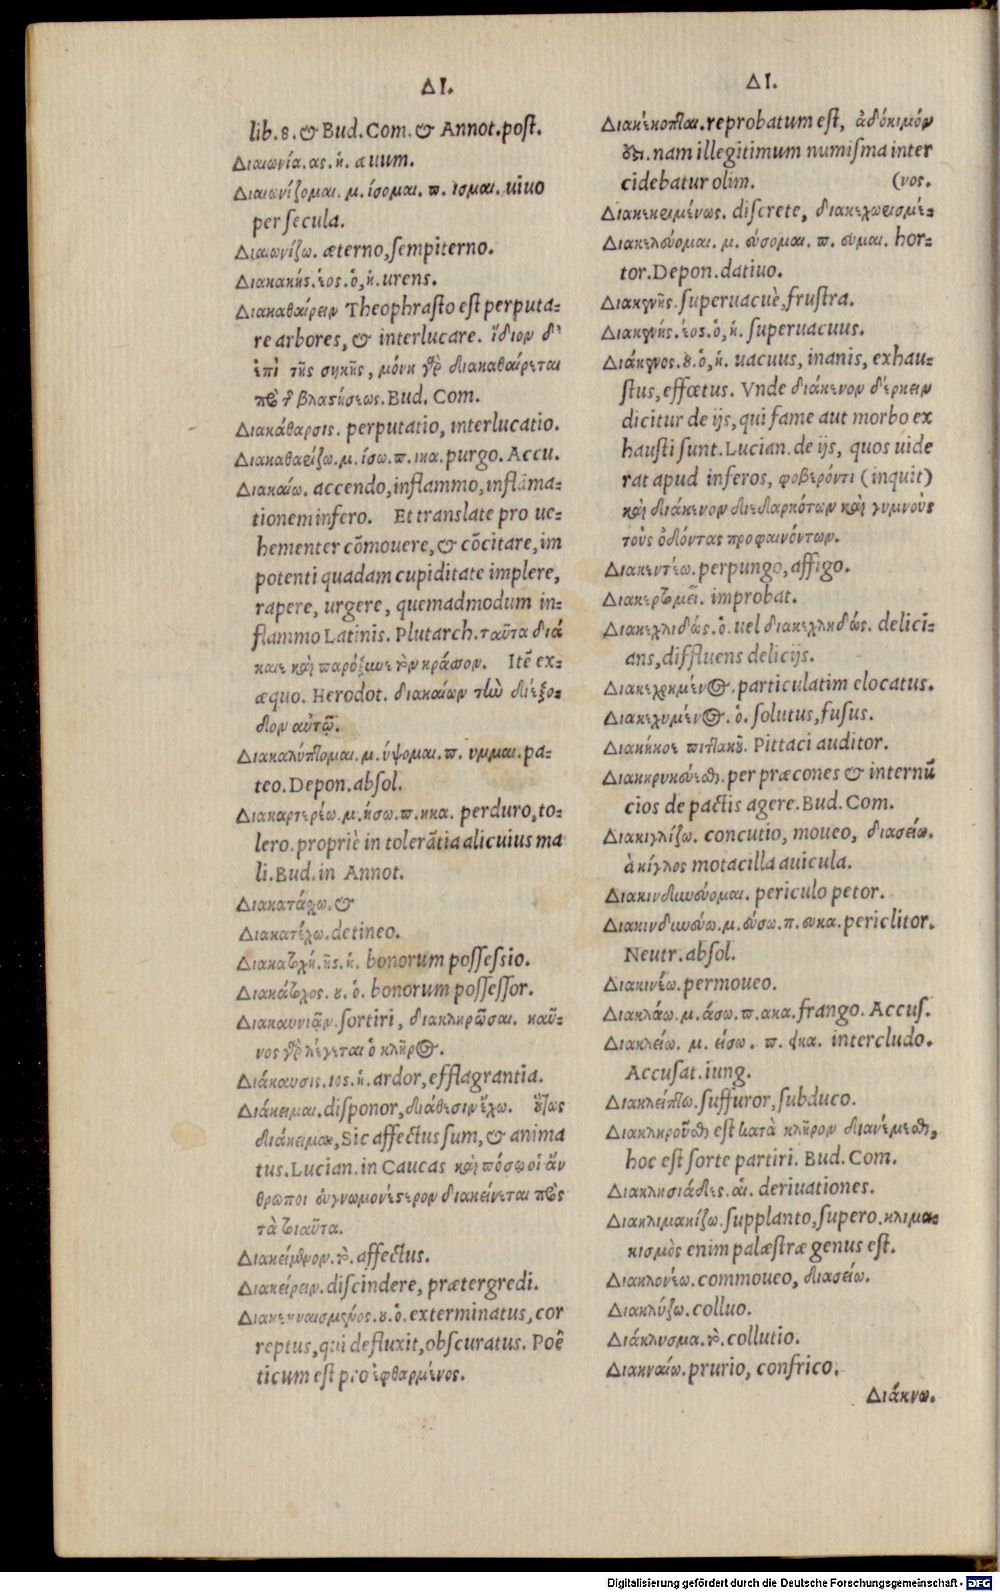 ΔΙ.
lib. 8. & Bud. Com. & Annot. post.
Διαιωνία. ας. ἡ. æuum.
Διαιωνίζομαι. μ. ίσομαι. π. ισμαι. uiuo
per secula.
Διαιωνίζω. æterno, sempiterno.
Διακαής. έος. ὁ, ἡ. urens.
Διακαθαίρειν Theophrasto est perputa-
re arbores, & interlucare. ἴδιον δ'
ἐπὶ τῆς συκῆς, μόνη γὰρ διακαθαίρεται
πρὸ τ βλαστήσεως. Bud. Com.
Διακάθαρσις. perputatio, interlucatio.
Διακαθαρίζω. μ. ίσω. π. ικα. purgo. Accu.
Διακαίω. accendo, inflammo, inflãma-
tionem infero. Et translate pro ue-
hementer cõmouere, & cõcitare, im
potenti quadam cupiditate implere,
rapere, urgere, quemadmodum in-
flammo Latinis. Plutarch. ταῦτα διέ
καιε καὶ παρόξυνε τὸν κράσσον. Itẽ ex-
æquo. Herodot. διακαίων τὴν διέξο-
δον αὐτῷ.
Διακαλύπτομαι. μ. ύψομαι. π. υμμαι. pa-
teo. Depon. absol.
Διακαρτερέω. μ. ήσω. π. ηκα. perduro, to-
lero. propriè in tolerãtia alicuius ma
li. Bud. in Annot.
Διακατάρχω. &
Διακατέχω. detineo.
Διακατοχή. ῆς. ἡ. bonorum possessio.
Διακάτοχος. ου. ὁ. bonorum possessor.
Διακαυνιᾷν. sortiri, διακληρῶσαι. καῦ-
νος γὰρ λέγεται ὁ κλῆρος.
Διάκαυσις. ιος. ἡ. ardor, efflagrantia.
Διάκειμαι. disponor, διάθεσιν ἔχω. οὕτως
διάκειμαι, Sic affectus sum, & anima
tus. Lucian. in Caucas καὶ πόσῳ οἱ ἄν
θρωποι εὐγνωμονέστερον διακείνεται πρὸς
τὰ τοιαῦτα.
Διακείμενον. τὸ. affectus.
Διακείρειν. discindere, prætergredi.
exterminatus, cor
reptus, qui defluxit, obscuratus. Poê
ticum est pro ἐφθαρμένος.
ΔΙ.
Διακέκοπται. reprobatum est, ἀδόκιμόν
ἐστι. nam illegitimum numisma inter
cidebatur olim. (νος.
Διακεκριμένως. discrete, διακεχωρισμέ-
Διακελεύομαι. μ. εύσομαι. π. ευμαι. hor-
tor. Depon. datiuo.
Διακενῆς. superuacuè, frustra.
Διακενής. έος. ὁ, ἡ. superuacuus.
Διάκενος. ου. ὁ, ἡ. uacuus, inanis, exhau-
stus, effœtus. Vnde διάκενον δέρκειν
dicitur de ijs, qui fame aut morbo ex
hausti sunt. Lucian. de ijs, quos uide
rat apud inferos, φοβερόντι (inquit)
καὶ διάκενον διεδαρκότων καὶ γυμνοὺς
τοὺς ὀδόντας προφαινόντων.
Διακεντέω. perpungo, affigo.
Διακερτομεῖ. improbat.
Διακεχλιδώς. ὁ. uel διακεχληδώς. delici-
ans, diffluens delicijs.
Διακεχρημένος. particulatim elocatus.
Διακεχυμένος. ὁ. solutus, fusus.
Διακήκοε πιττακοῦ. Pittaci auditor.
Διακηρυκεύεσθαι. per præcones & internũ
cios de pactis agere. Bud. Com.
Διακιγλίζω. concutio, moueo, διασείω.
ἀ κίγλος motacilla auicula.
Διακινδυνεύομαι. periculo petor.
Διακινδυνεύω. μ. εύσω. π. ευκα. periclitor.
Neutr. absol.
Διακινέω. permoueo.
Διακλάω. μ. άσω. π. ακα. frango. Accus.
Διακλείω. μ. είσω. π. εικα. intercludo.
Accusat. iung.
Διακλείπτω. suffuror, subduco.
Διακληροῦσθαι est κατὰ κλῆρον διανέμεσθαι,
hoc est sorte partiri. Bud. Com.
Διακλησιάδες. αἱ. deriuationes.
Διακλιμακίζω. supplanto, supero. κλιμα-
κισμὸς enim palæstræ genus est.
Διακλονέω. commoueo, διασείω.
Διακλύζω. colluo.
Διάκλυσμα. τὸ. collutio.
Διακναίω. prurio, confrico.
Διάκνω.
Digitalisierung gefördert durch die Deutsche Forschungsgemeinschaft - DFG